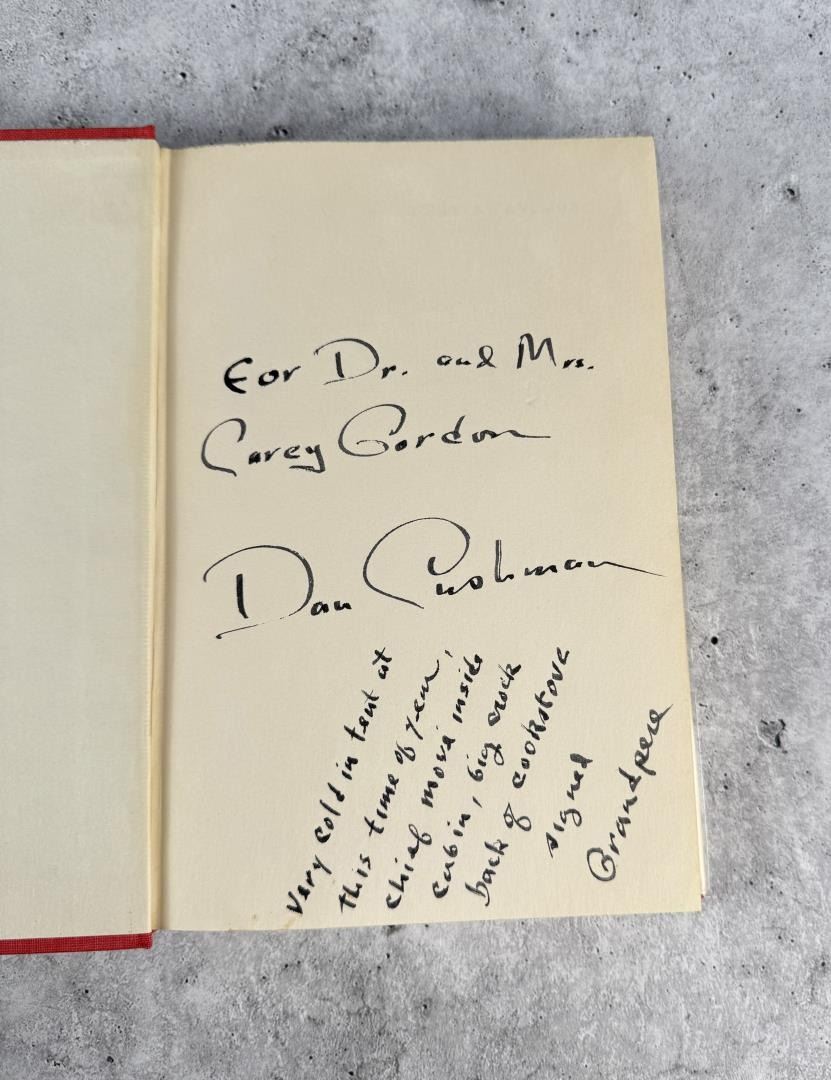 For Dr. and Mrs.
Carey Gordon
Dan Cushman
Very cold in tent at
this time of year,
chief move inside
cabin, big crock
back of cookstove
signed
Grandpere